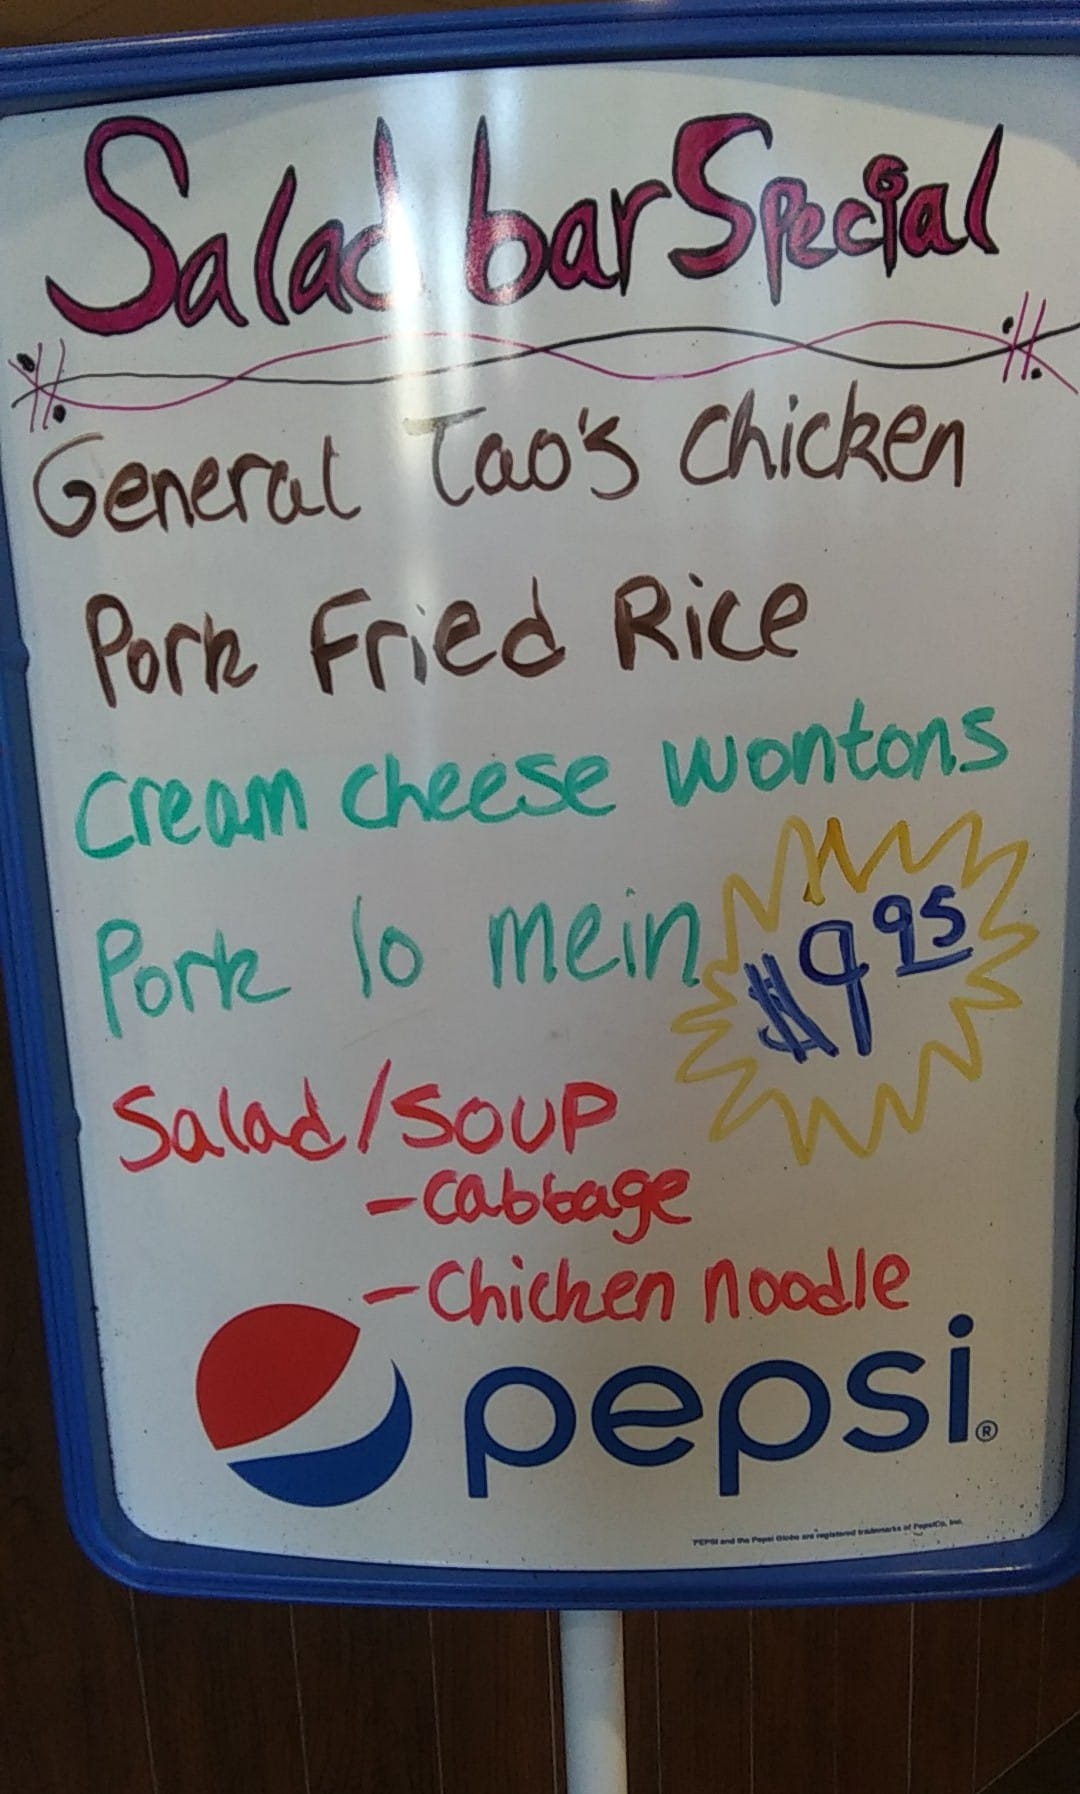 Salad bar Special
General Tao's Chicken
Pork Fried Rice
Cream cheese wontons
Pork lo mein
$9.95
Salad/SOUP
-Cabbage
-Chicken noodle
pepsi®
PEPSI and the Pepsi Globe are registered trademarks of PepsiCo, Inc.